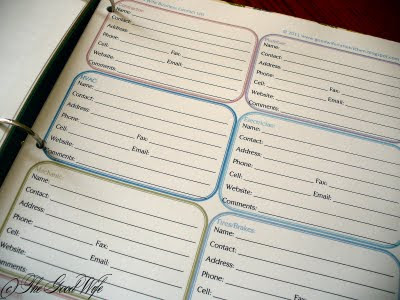 Business Contact List
© 2011
Name:
Contact:
Address:
Phone:
Cell: Fax:
Website: Email:
Comments:
Plumber:
Name:
Contact:
Address:
Phone:
Cell:
Website:
Comments:
HVAC:
Name:
Contact:
Address:
Phone:
Cell: Fax:
Website: Email:
Comments:
Electrician:
Name:
Contact:
Address:
Phone:
Cell:
Website:
Comments:
Mechanic:
Name:
Contact:
Address:
Phone:
Cell: Fax:
Website: Email:
Comments:
Tires/Brakes:
Name:
Contact:
Address:
Phone:
Cell:
© The Good Wife